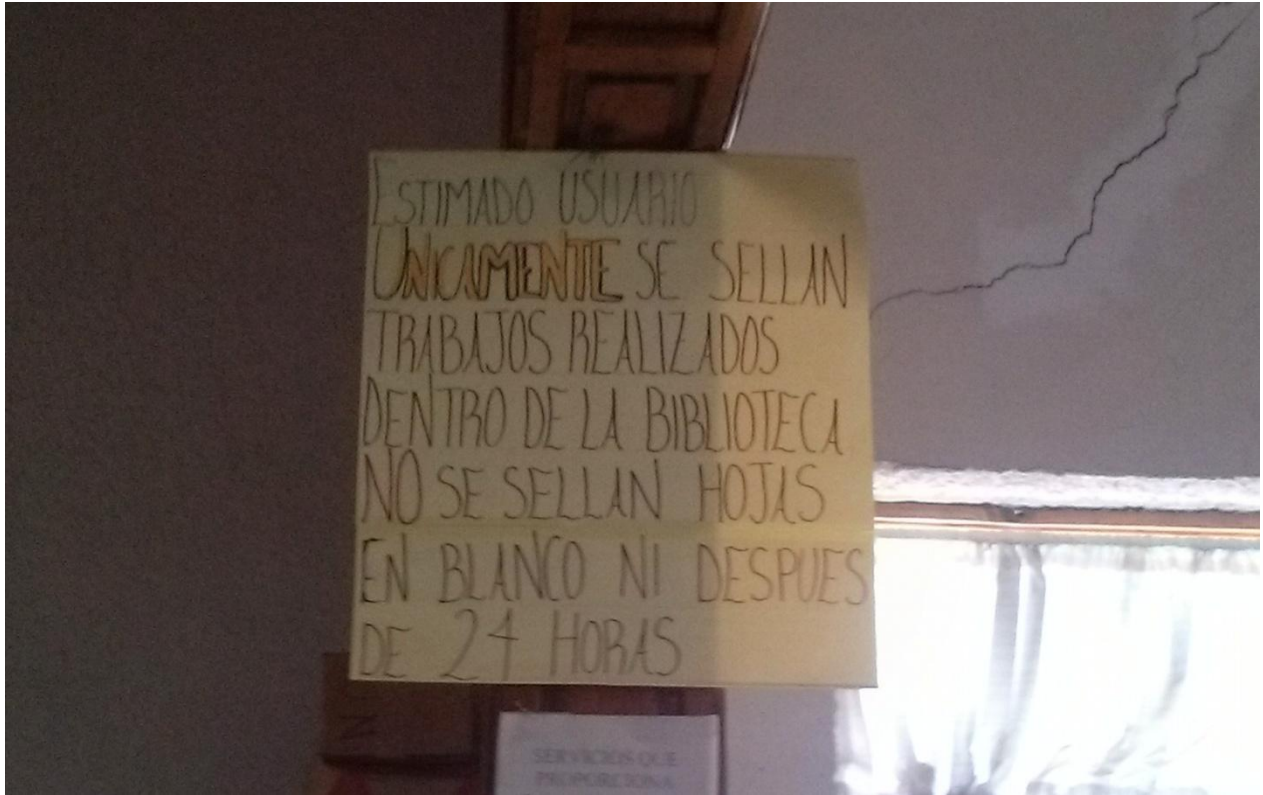 ESTIMADO USUARIO
ÚNICAMENTE SE SELLAN
TRABAJOS REALIZADOS
DENTRO DE LA BIBLIOTECA
NO SE SELLAN HOJAS
EN BLANCO NI DESPUES
DE 24 HORAS
SERVICIOS QUE
PROPORCIONA